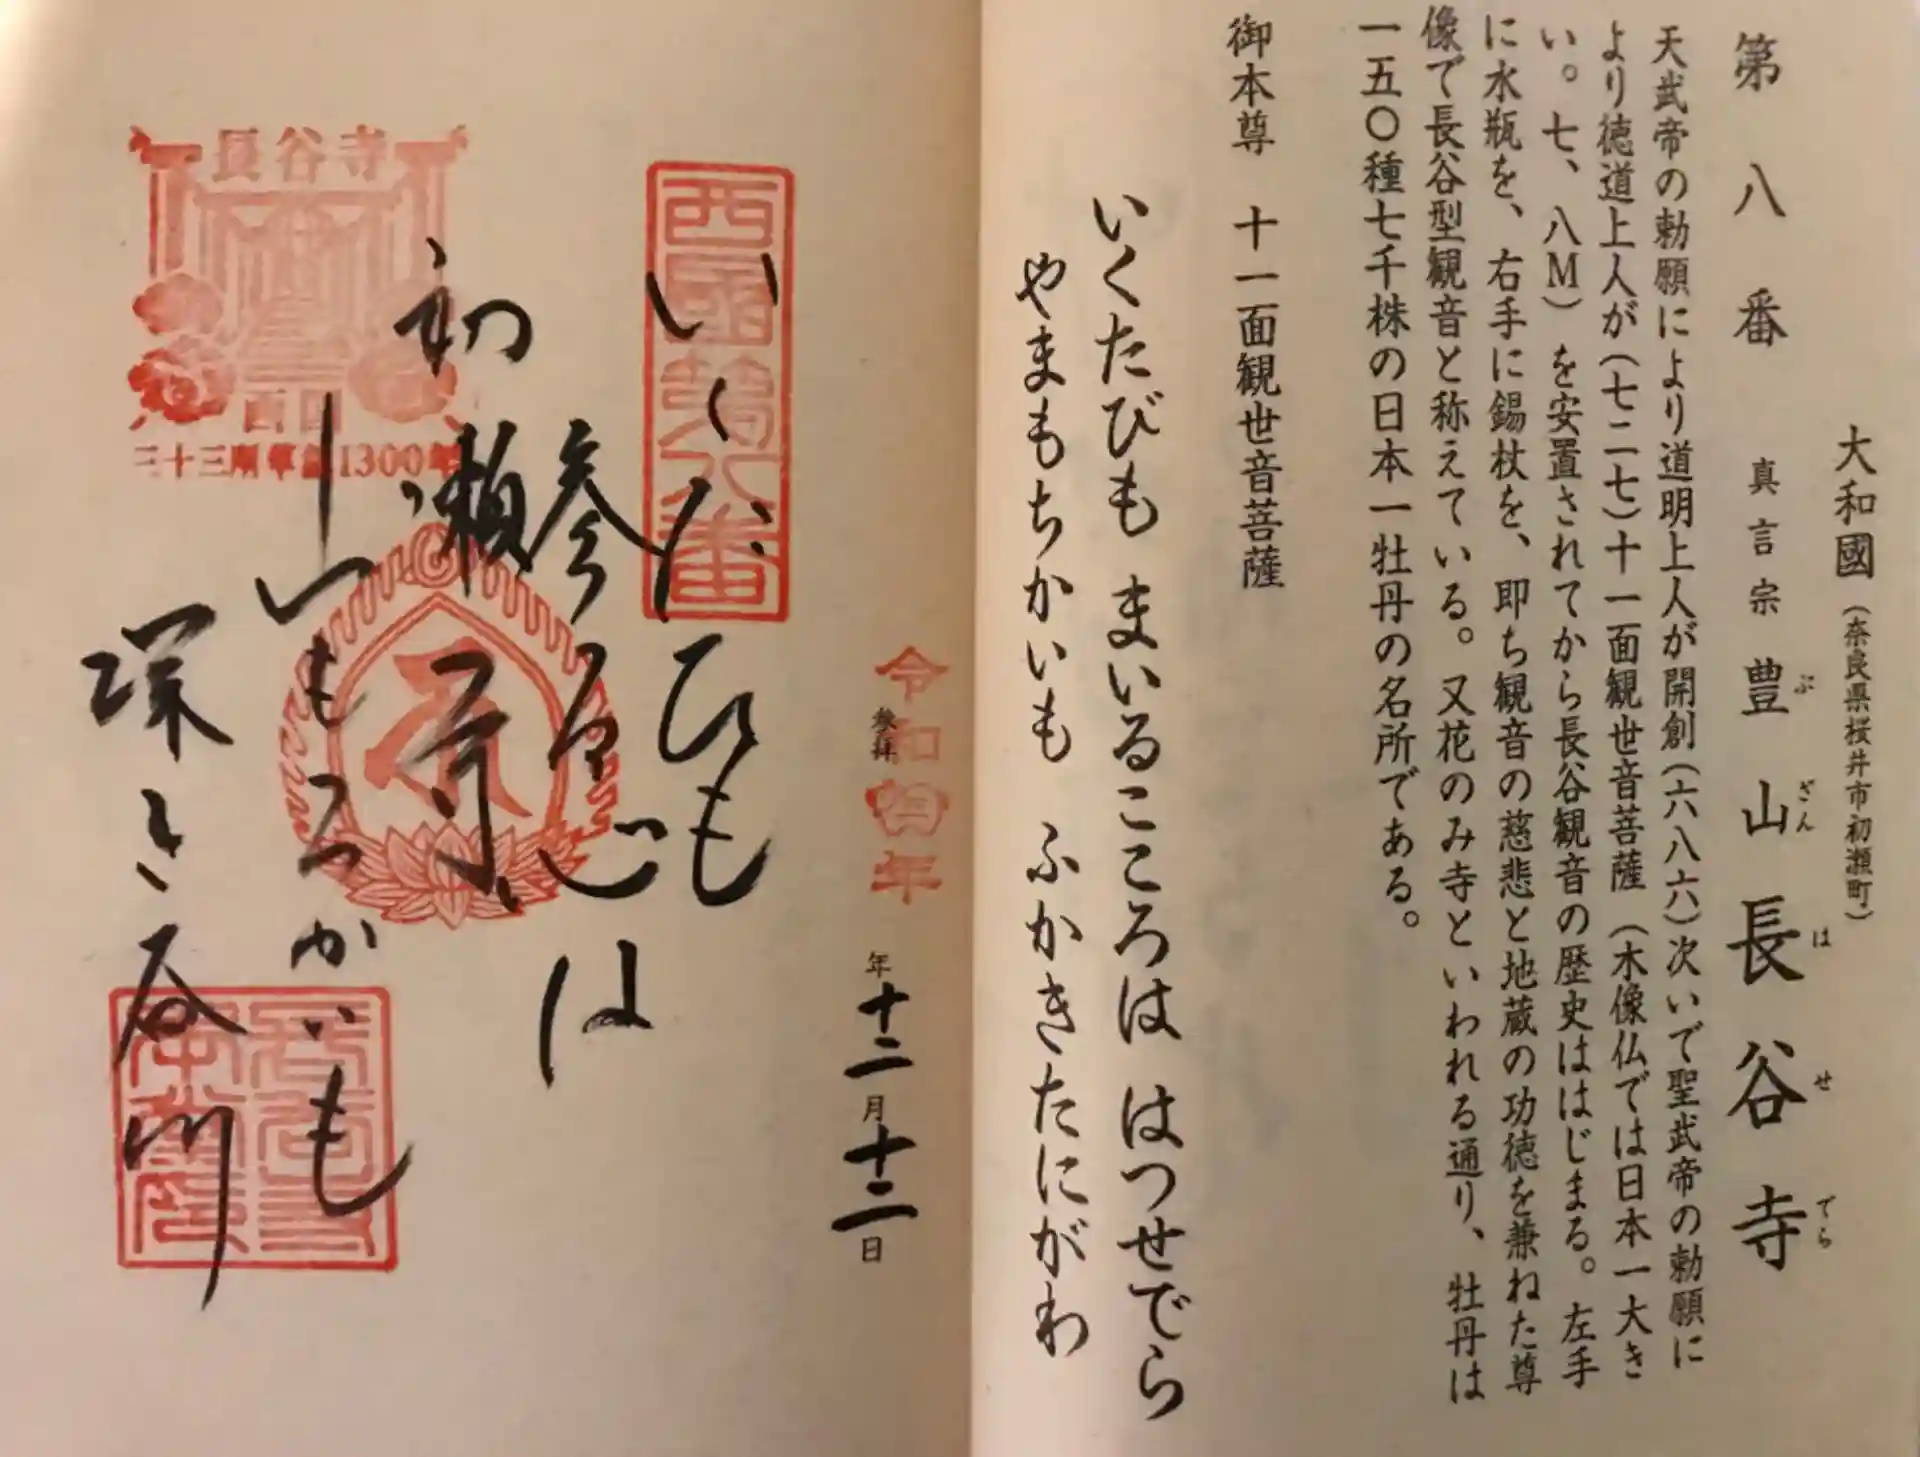 大和國(奈良県桜井市初瀬町)
第八番 真言宗 豊山長谷寺
ぶ ざん は せ でら
天武帝の勅願により道明上人が開創(六八六)次いで聖武帝の勅願に
より徳道上人が(七二七)十一面観世音菩薩(木像仏では日本一大き
い。七、八M)を安置されてから長谷観音の歴史ははじまる。左手
に水瓶を、右手に錫杖を、即ち観音の慈悲と地蔵の功徳を兼ねた尊
像で長谷型観音と称えている。又花のみ寺といわれる通り、牡丹は
一五〇種七千株の日本一牡丹の名所である。
御本尊 十一面観世音菩薩
いくたびも まいるこころは はつせでら
やまもちかいも ふかきたにがわ
令和四年
参拝 年十二月十二日
西國第八番
いくたひも
参る心は
初瀬寺
山もちかいも
深き谷川
長谷寺
西国
三十三所草創1300年